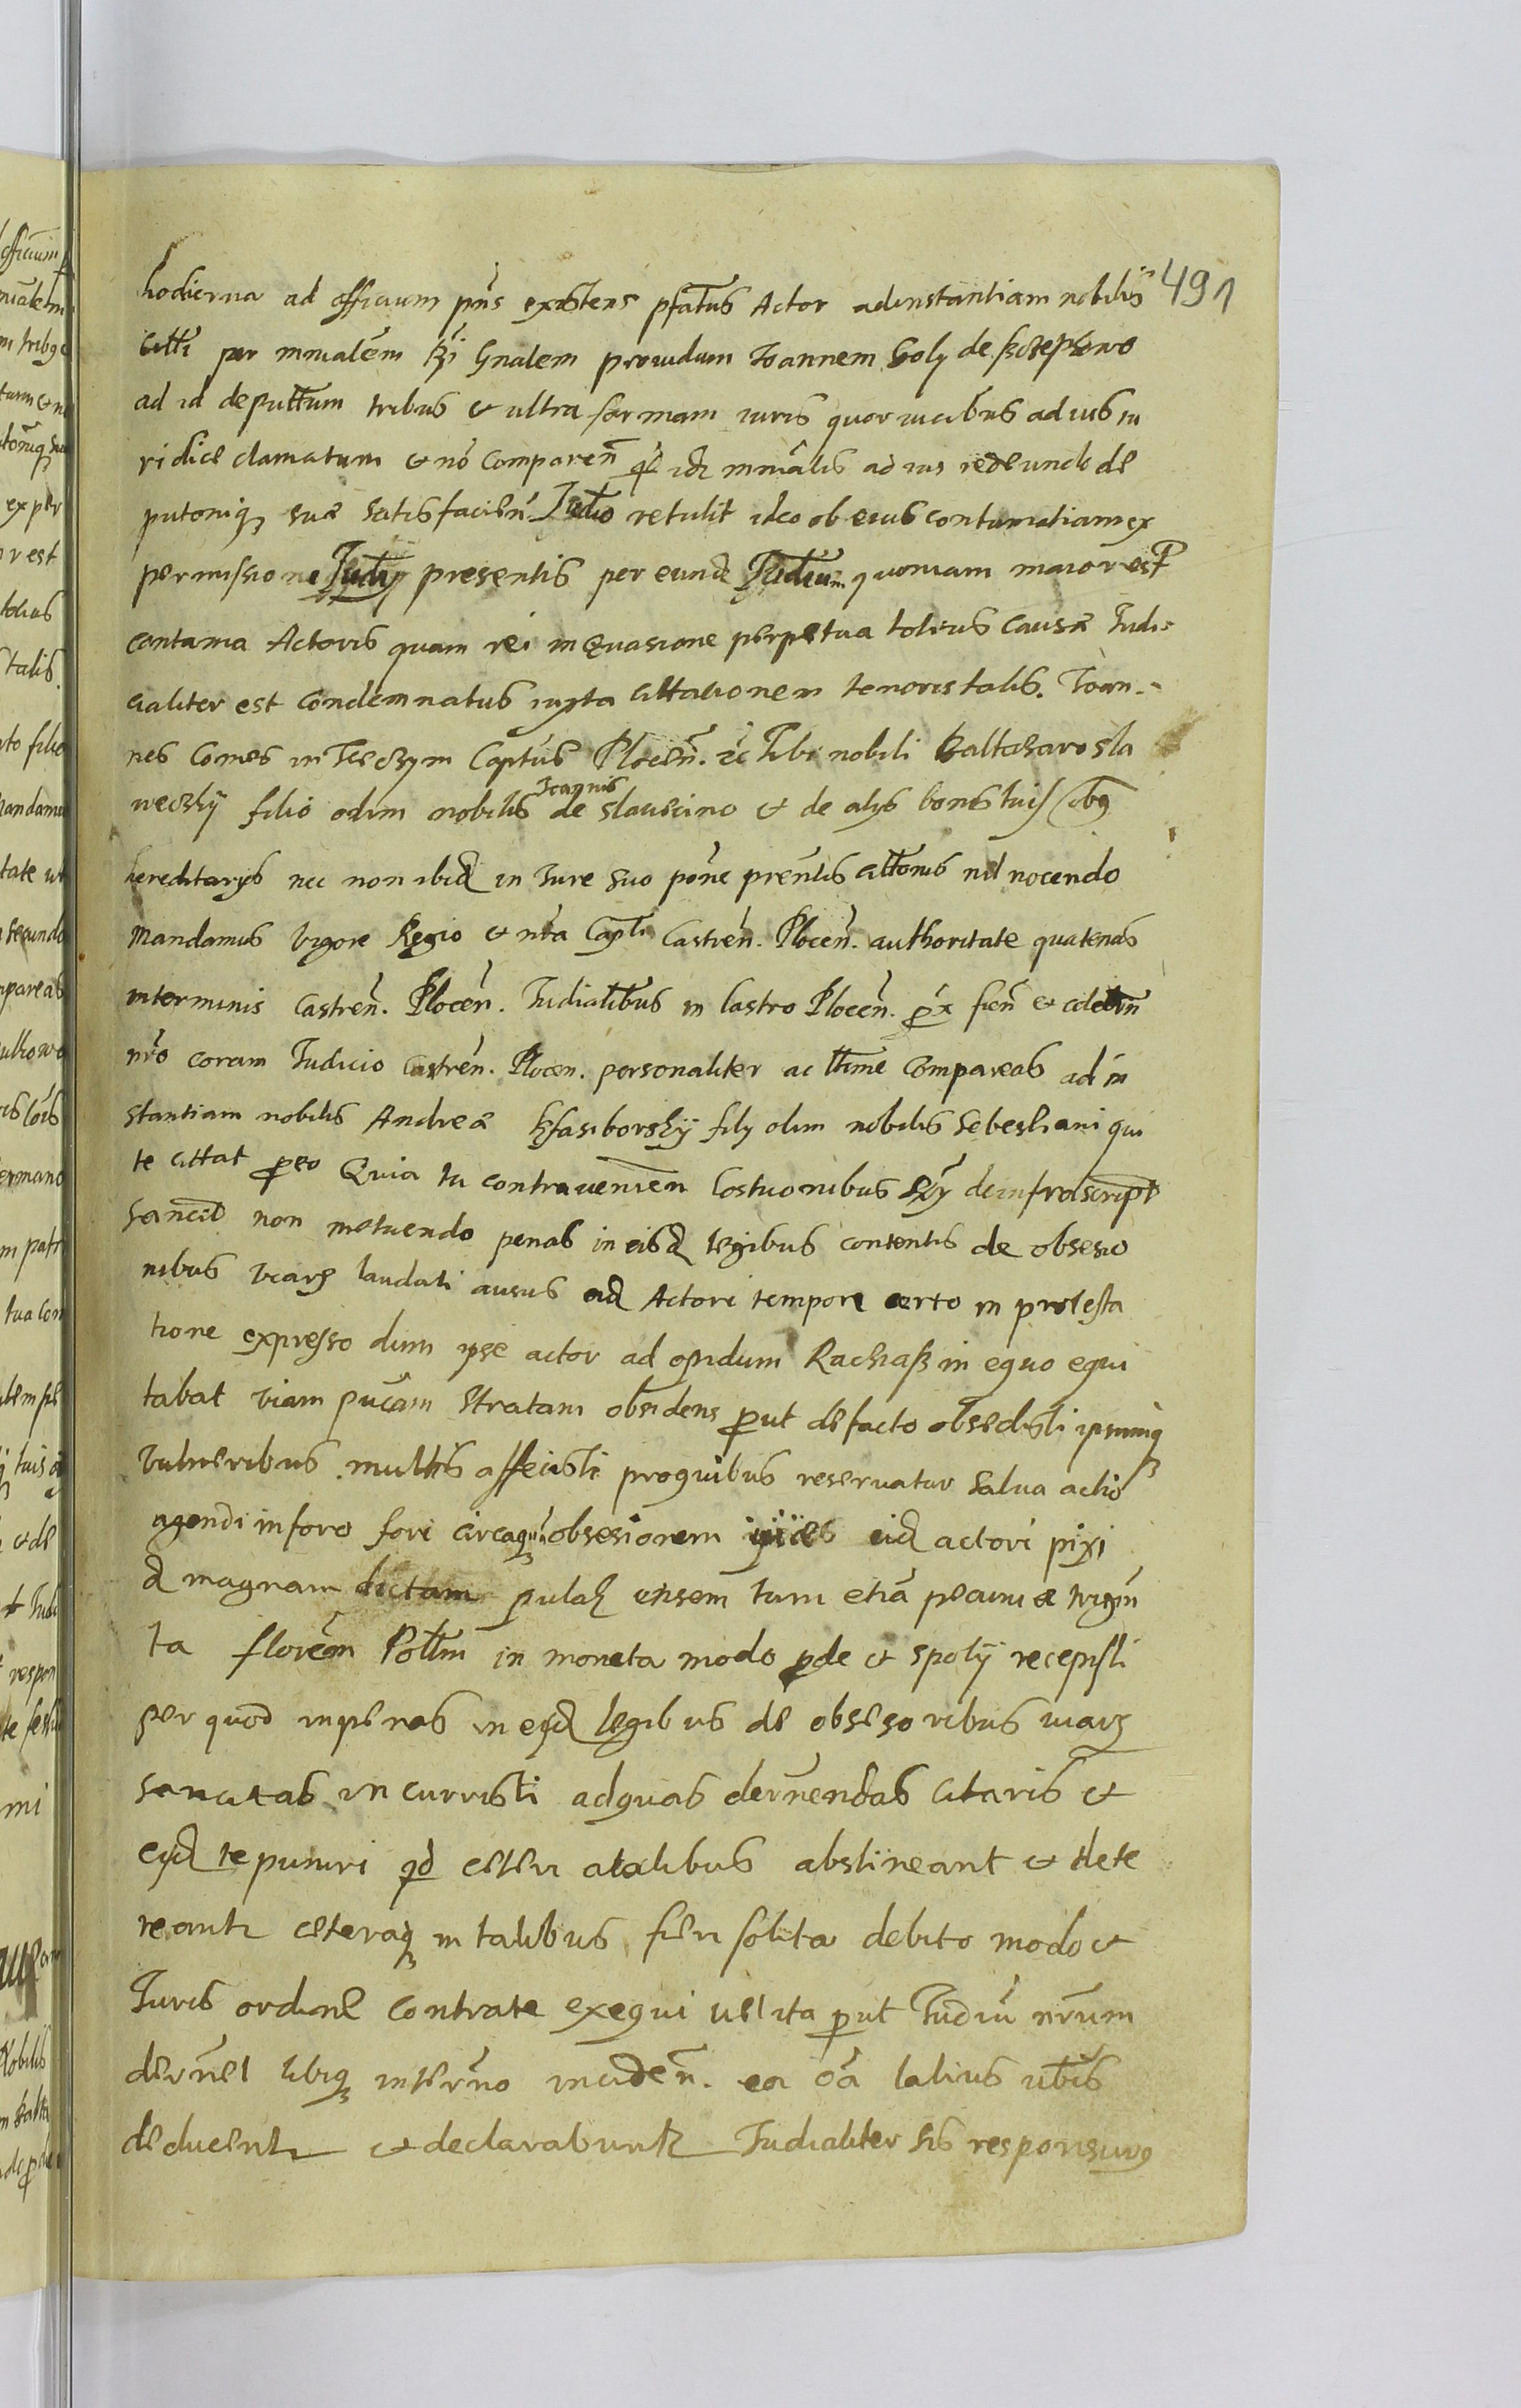 491
hodierna ad officium pns existens pfatus Actor ad instantiam nobilis
citti per mnialem Rni Gnalem prouidum Joannem Goly de
ad id deputtum tribus et ultra formam iuris quor uicibus ad ius iu
ridice clamatum et no Comparen qd idz mnialis ad ius redeundo de
putoniq suæ satisfacien Judio retulit ideo ob eius contumatiam ex
permissione Judij presentis per eund Judium quoniam maior est
contuma Actoris quam rei in euasione perpetua totius causæ Judi=
cialiter est condemnatus iuxta cittationem tenoris talis. Joan=
nes Comes in Tecczym Captus Plocen. etc Tibi nobili Baltasaro sla
weczkÿ filio olim nobilis Joannis de slawcino et de alys bonis tuis
hereditarys nec non ibid in Jure suo pone prentis citttonis nil nocendo
Mandamus Vigore Regio et nra Capli Castren. Plocen. authoritate quatenus
in terminis Castren. Plocen. Judialibus in Castro Plocen. px fien et celebn
nro coram Judicio Castren. Plocen. personaliter ac ltime Compareas ad in
stantiam nobilis Andreæ filÿ olim nobilis Sebestiani qui
te cittat pro eo Quia tu contrauenien Costuonibus de infrascript
sancit non metuendo penas in eisd legibus contentis de obsesio
nibus viarz laudati ausus eid Actori tempore certo in protesta
tione expresso dum ipse actor ad opidum Raciaß in equo equi
tabat viam pucam stratam obsidens put de facto obsedisti ipsumq
vulneribus multis affecisti pro quibus reseruatur salua actio
agendi in foro fori circa qm obsesionem eid actori pixi
d magnam dictam pulaz ensem tum etia pecuniæ trigin
ta florem Polln in moneta modo pde et spolÿ recepisti
per quod in penas in eisd legibus de obsesoribus viarz
sancitas incurristi ad quas decernendas citaris et
eisd te puniri qd ceteri a talibus abstineant et dete
reantr ceteraq in talibus fieri solita debito modo et
Juris ordine contra te exequi vel ita put Judiu nrum
decernet tibiq in termno inciden. ea oa latius vbis
deducentr et declarabuntr Judialiter sis responsurus